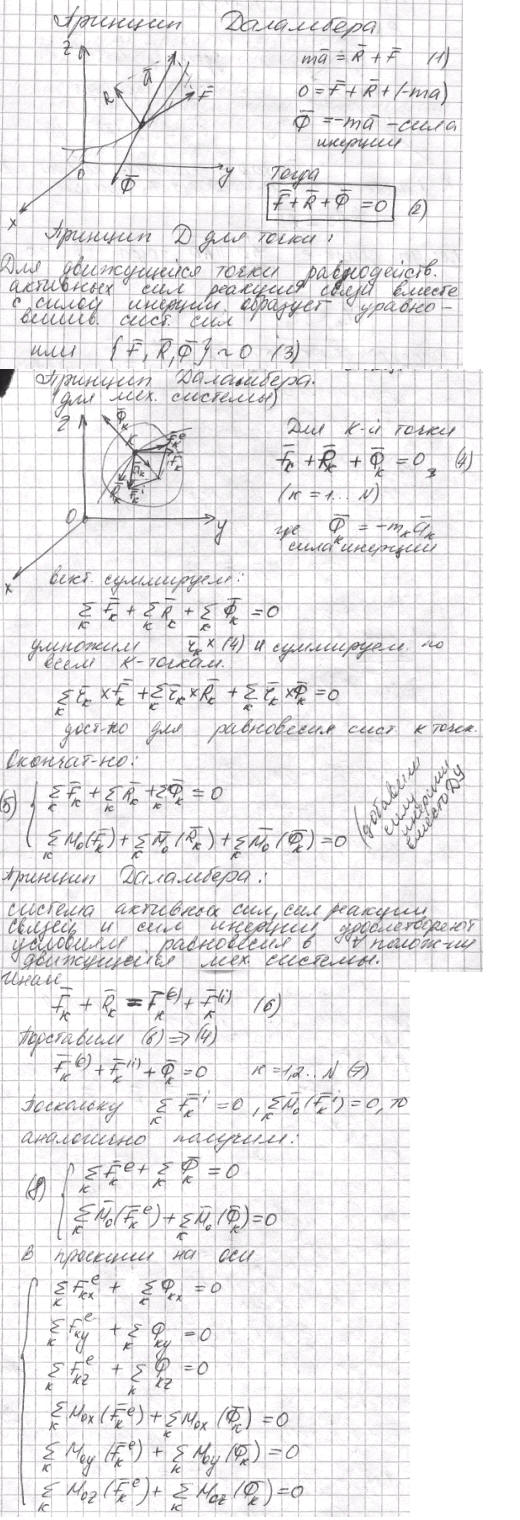 Принцип Даламбера
z
R
a̅
F̅
Φ̅
O
y
x
ma̅ = R̅ + F̅ (1)
0 = F̅ + R̅ + (-ma̅)
Φ̅ = -ma̅ - сила
инерции
Тогда
F̅ + R̅ + Φ̅ = 0 (2)
Принцип Д для точки:
Для движущейся точки равнодейств.
активных сил, реакция связи вместе
с силой инерции образует уравно-
вешив. сист. сил
или {F̅, R̅, Φ̅} ~ 0 (3)
Принцип Даламбера.
(для мех. системы)
z
Φ̅к
к
F̅кᵉ
F̅к
a̅к
R̅к
F̅кⁱ
O
y
x
Для к-й точки
F̅к + R̅к + Φ̅к = 0, (4)
(к = 1... N)
где Φ̅к = -mкa̅к
сила инерции
вект. суммируем:
∑к F̅к + ∑к R̅к + ∑к Φ̅к = 0
умножим r̅к × (4) и суммируем по
всем к-точкам.
∑к r̅к × F̅к + ∑к r̅к × R̅к + ∑к r̅к × Φ̅к = 0
дост-но для равновесия сист. к точек.
Окончат-но:
(5) { ∑к F̅к + ∑к R̅к + ∑к Φ̅к = 0
∑к M̅о(F̅к) + ∑к M̅о(R̅к) + ∑к M̅о(Φ̅к) = 0
(добавили
силу
инерции
вместо ДУ
Принцип Даламбера:
система активных сил, сил реакции
связей и сил инерции удовлетворяют
условиям равновесия в ∀ полож-ии
движущейся мех. системы.
Иначе
F̅к + R̅к = F̅к⁽ᵉ⁾ + F̅к⁽ⁱ⁾ (6)
Подставим (6) => (4)
F̅к⁽ᵉ⁾ + F̅к⁽ⁱ⁾ + Φ̅к = 0 к = 1,2... N (7)
Поскольку ∑к F̅кⁱ = 0, ∑к M̅о(F̅кⁱ) = 0, то
аналогично получим:
(8) { ∑к F̅кᵉ + ∑к Φ̅к = 0
∑к M̅о(F̅кᵉ) + ∑к M̅о(Φ̅к) = 0
В проекции на оси
∑к Fкxᵉ + ∑к Φкx = 0
∑к Fкyᵉ + ∑к Φкy = 0
∑к Fкzᵉ + ∑к Φкz = 0
∑к Mox(F̅кᵉ) + ∑к Mox(Φ̅к) = 0
∑к Moy(F̅кᵉ) + ∑к Moy(Φ̅к) = 0
∑к Moz(F̅кᵉ) + ∑к Moz(Φ̅к) = 0